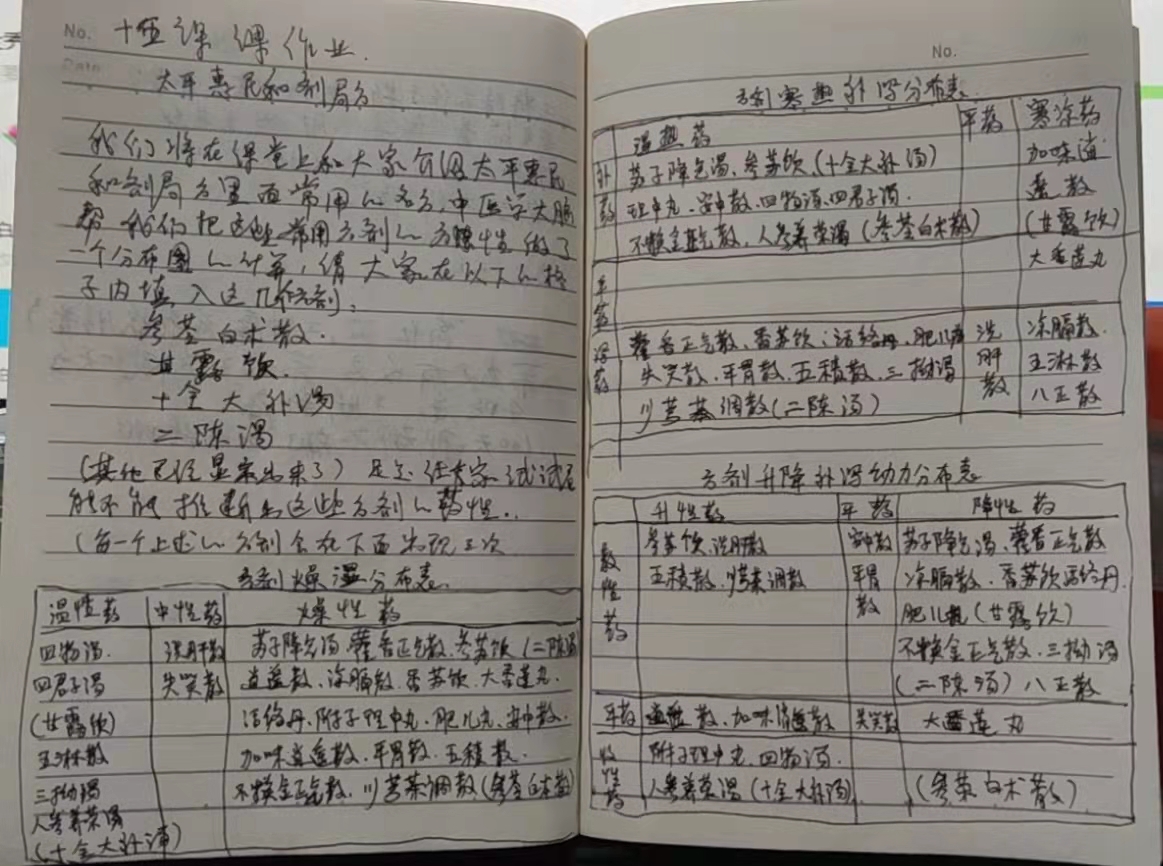 No.
十五课 课作业.
Date
太平惠民和剂局方
我们将在课堂上和大家介绍太平惠民
和剂局方里面常用的名方,中医学大脑
帮我们把这些常用方剂的方性做了
一个分布图的计算,请大家在以下的格
子内填入这几个方剂:
参苓白术散.
甘露饮.
十全大补汤
二陈汤
(其他已经显示出来了)是让大家试试看
能不能推断出这些方剂的药性..
(每一个上述的方剂会在下面出现三次
方剂燥湿分布表.
湿性药 中性药 燥性药
四物汤. 洗肝散 苏子降气汤.藿香正气散.参苏饮(二陈汤)
四君子汤 失笑散 逍遥散、凉膈散.香苏饮.大香连丸.
(甘露饮) 活络丹.附子理中丸.肥儿丸.安中散.
五淋散 加味逍遥散.平胃散.五积散.
三拗汤 不换金正气散.川芎茶调散(参苓白术散)
人参养荣汤
(十全大补汤)
No.
方剂寒热补泻分布表.
温热药 平药 寒凉药
补药 苏子降气汤、参苏饮、(十全大补汤) 加味逍遥散
理中丸、安中散、四物汤.四君子汤. (甘露饮)
不换金正气散、人参养荣汤(参苓白术散) 大香连丸
平药
泻药 藿香正气散、香苏饮、活络丹、肥儿丸 洗肝散 凉膈散.
失笑散、平胃散、五积散、三拗汤 五淋散
川芎茶调散(二陈汤) 八正散
方剂升降补泻动力分布表
升性药 平药 降性药
散性药 参苏饮、洗肝散 安中散 苏子降气汤、藿香正气散
五积散、川芎茶调散 平胃散 凉膈散、香苏饮活络丹.
肥儿丸(甘露饮)
不换金正气散、三拗汤
(二陈汤)八正散
平药 逍遥散、加味逍遥散 失笑散 大香连丸
收性药 附子理中丸、四物汤.
人参养荣汤(十全大补汤) (参苓白术散)